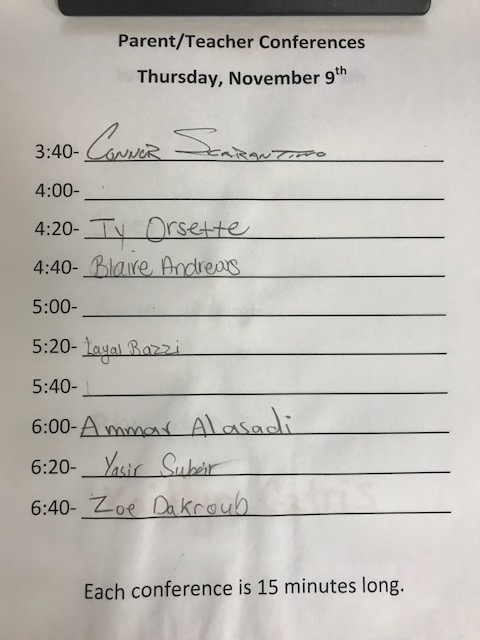 Parent/Teacher Conferences
Thursday, November 9th
3:40- Connor Scarantino
4:00-
4:20- Ty Orsette
4:40- Blaire Andrews
5:00-
5:20- Layal Bazzi
5:40-
6:00- Ammar Alasadi
6:20- Yasir Subeir
6:40- Zoe Dakroub
Each conference is 15 minutes long.